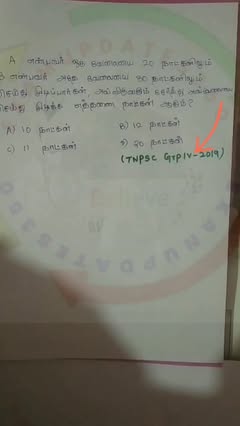 A என்பவர் ஒரு வேலையை 20 நாட்களிலும்
என்பவர் அதே வேலையை 30 நாட்களிலும்
செய்து முடிப்பார்கள், அவ்விருவரும் சேர்ந்து அவ்வேலையை
செய்து முடிக்க எத்தனை நாட்கள் ஆகும்?
A) 10 நாட்கள் B) 12 நாட்கள்
C) 11 நாட்கள் D) 20 நாட்கள்
(TNPSC Grp IV-2019)